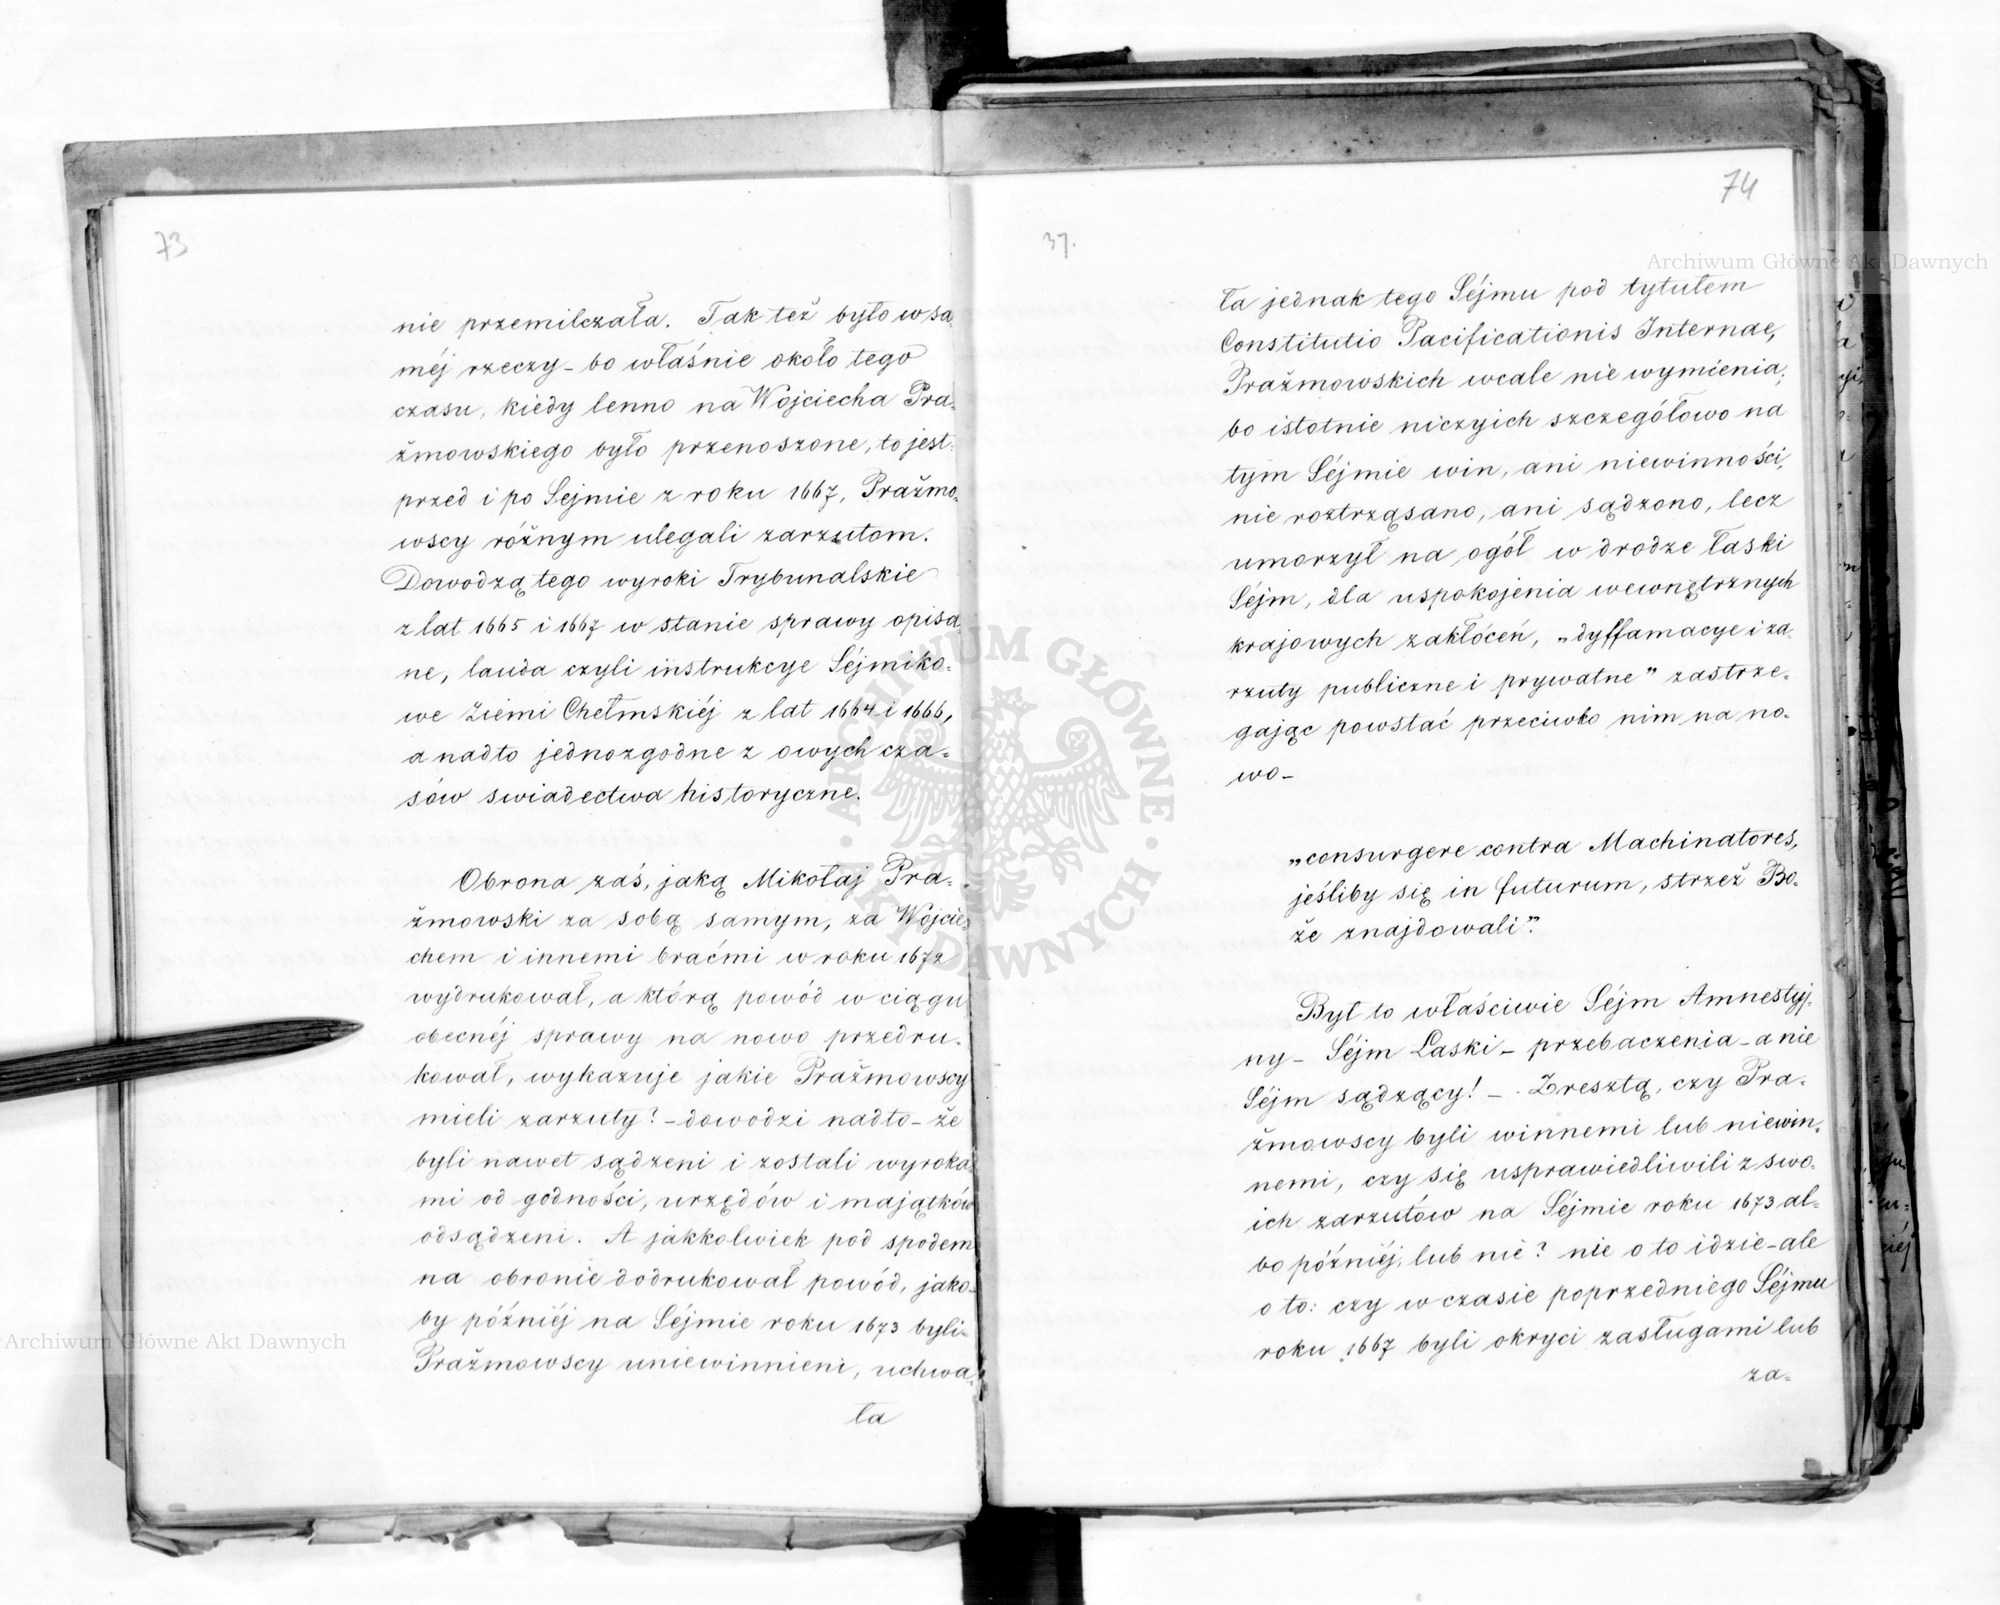 73
nie przemilczała. Tak też było w sa-
méj rzeczy – bo właśnie około tego
czasu, kiedy lenno na Wojciecha Pra-
żmowskiego było przenoszone, to jest:
przed i po Sejmie z roku 1667, Prażmo-
wscy różnym ulegali zarzutom.
Dowodzą tego wyroki Trybunalskie
z lat 1665 i 1667 w stanie sprawy opisa
ne, lauda czyli instrukcye Séjmiko-
we Ziemi Chełmskiéj z lat 1664 i 1666,
a nadto jednozgodne z owych cza-
sów swiadectwa historyczne.
Obrona zaś, jaką Mikołaj Pra-
żmowski za sobą samym, za Wojcie-
chem i innemi braćmi w roku 1672
wydrukował, a którą powód w ciągu
obecnéj sprawy na nowo przedru-
kował, wykazuje jakie Prażmowscy
mieli zarzuty? – dowodzi nadto – że
byli nawet sądzeni i zostali wyroka-
mi od godności, urzędów i majątków
odsądzeni. A jakkolwiek pod spodem
na obronie dodrukował powód, jako-
by późniéj na Séjmie roku 1673 byli
Prażmowscy uniewinnieni, uchwa-
ła
37.
74
ła jednak tego Séjmu pod tytułem
Constitutio Pacificationis Internae,
Prażmowskich wcale nie wymienia;
bo istotnie niczyich szczegółowo na
tym Séjmie win, ani niewinności,
nie roztrząsano, ani sądzono, lecz
umorzył na ogół w drodze łaski
Séjm, dla uspokojenia wewnętrznych
krajowych zakłóceń, „dyffamacye i za-
rzuty publiczne i prywatne” zastrze-
gając powstać przeciwko nim na no-
wo –
„consurgere contra Machinatores,
jeśliby się in futurum, strzeż Bo-
że znajdowali”.
Był to właściwie Séjm Amnestyj-
ny – Séjm Łaski – przebaczenia – a nie
Séjm sądzący! – Zresztą, czy Pra-
żmowscy byli winnemi lub niewin-
nemi, czy się usprawiedliwili z swo-
ich zarzutów na Séjmie roku 1673 al-
bo późniéj, lub nie? nie o to idzie – ale
o to: czy w czasie poprzedniego Séjmu
roku 1667 byli okryci zasługami lub
za-
Archiwum Główne Akt Dawnych
Archiwum Główne Akt Dawnych
ARCHIWUM GŁÓWNE AKT DAWNYCH